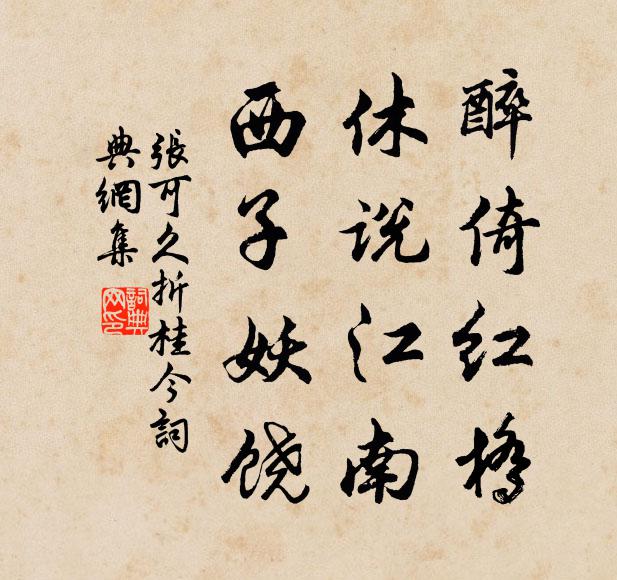 醉倚红桥
休说江南
西子妖饶
張可久折桂今詞
典網集
詞典
网印